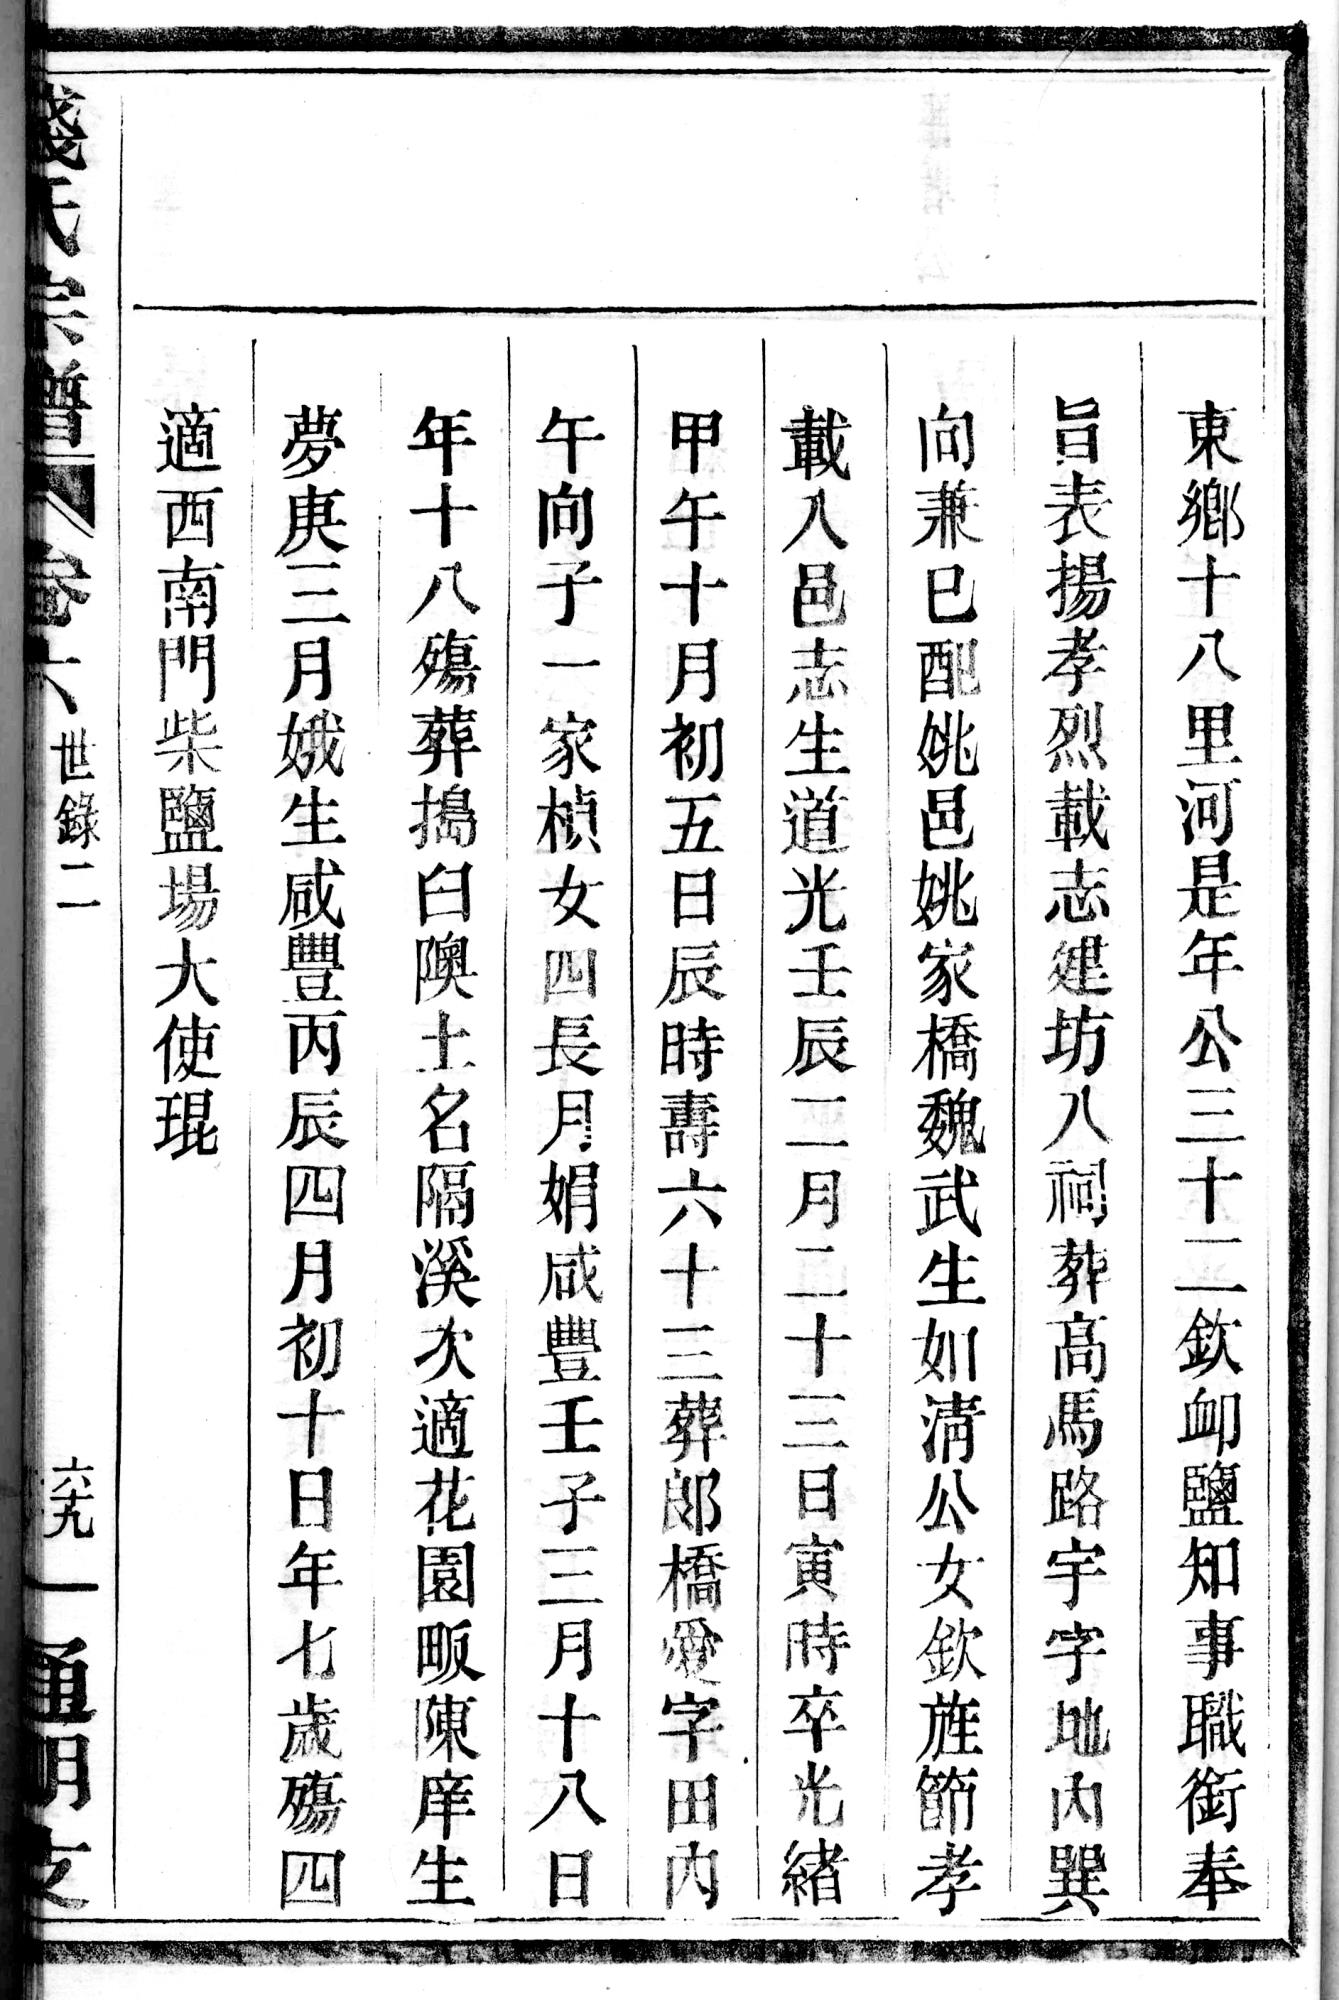 東鄉十八里河是年公三十二欽卹鹽知事職銜奉
旨表揚孝烈載志建坊入祠葬高馬路宇字地內巽
向兼巳配姚邑姚家橋魏武生如淸公女欽旌節孝
載入邑志生道光壬辰二月二十三日寅時卒光緒
甲午十月初五日辰時壽六十三葬郞橋愛字田內
午向子一家楨女四長月娟咸豐壬子三月十八日
年十八殤葬搗臼隩土名隔溪次適花園畈陳庠生
夢庚三月娥生咸豐丙辰四月初十日年七歲殤四
適西南門柴鹽場大使琨
錢氏宗譜
卷六
世錄二
六九
通明支